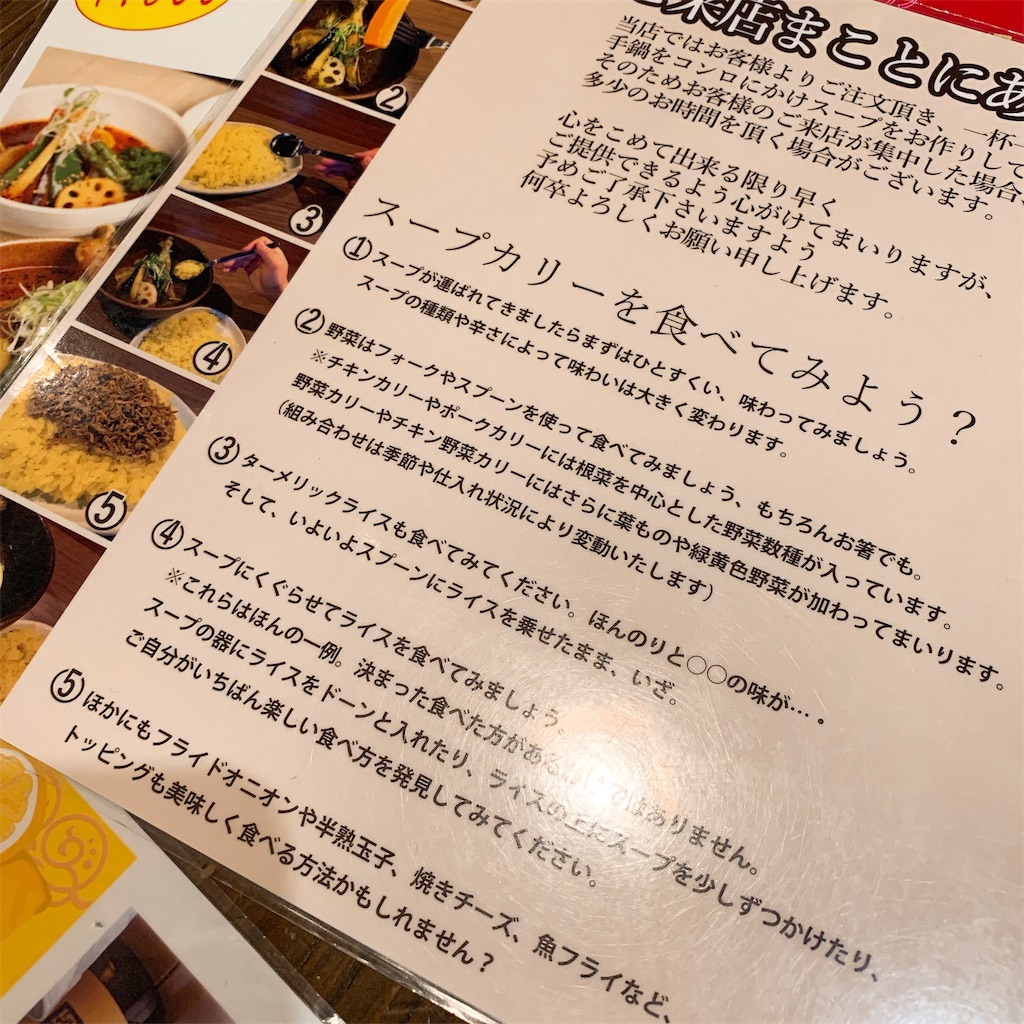 来店まことにあ
当店ではお客様よりご注文頂き、一杯一
手鍋をコンロにかけスープをお作りして
そのためお客様のご来店が集中した場合、
多少のお時間を頂く場合がございます。
心をこめて出来る限り早く
ご提供できるよう心がけてまいりますが、
予めご了承下さいますよう
何卒よろしくお願い申し上げます。
スープカリーを食べてみよう？
①スープが運ばれてきましたらまずはひとすくい、味わってみましょう。
スープの種類や辛さによって味わいは大きく変わります。
②野菜はフォークやスプーンを使って食べてみましょう、もちろんお箸でも。
※チキンカリーやポークカリーには根菜を中心とした野菜数種が入っています。
野菜カリーやチキン野菜カリーにはさらに葉ものや緑黄色野菜が加わってまいります。
（組み合わせは季節や仕入れ状況により変動いたします）
③ターメリックライスも食べてみてください。ほんのりと○○の味が…。
そして、いよいよスプーンにライスを乗せたまま、いざ。
④スープにくぐらせてライスを食べてみましょう。
※これらはほんの一例。決まった食べ方があるわけではありません。
スープの器にライスをドーンと入れたり、ライスの上にスープを少しずつかけたり、
ご自分がいちばん楽しい食べ方を発見してみてください。
⑤ほかにもフライドオニオンや半熟玉子、焼きチーズ、魚フライなど、
トッピングも美味しく食べる方法かもしれません？
②
③
④
⑤